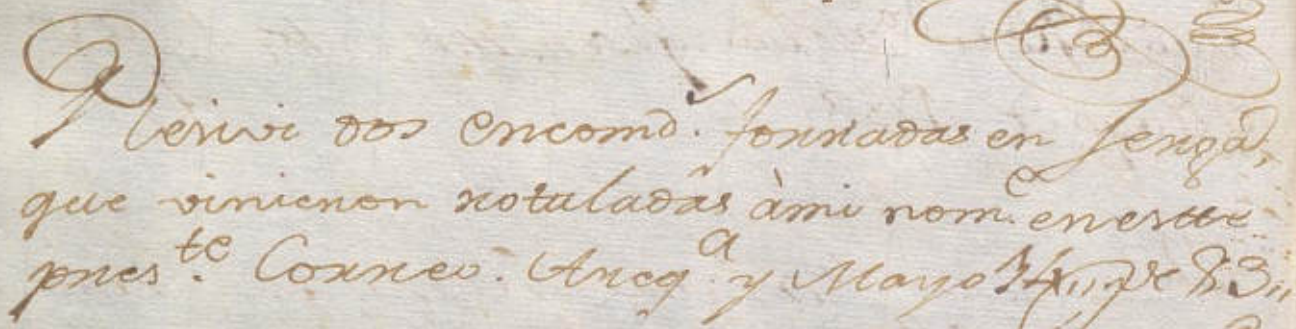 Resivi dos encomd.s forradas en Jerga,
que vinieron rotuladas à mi nom.e en estte
pres.te Correo. Areq.a y Mayo 14,, de 83,,